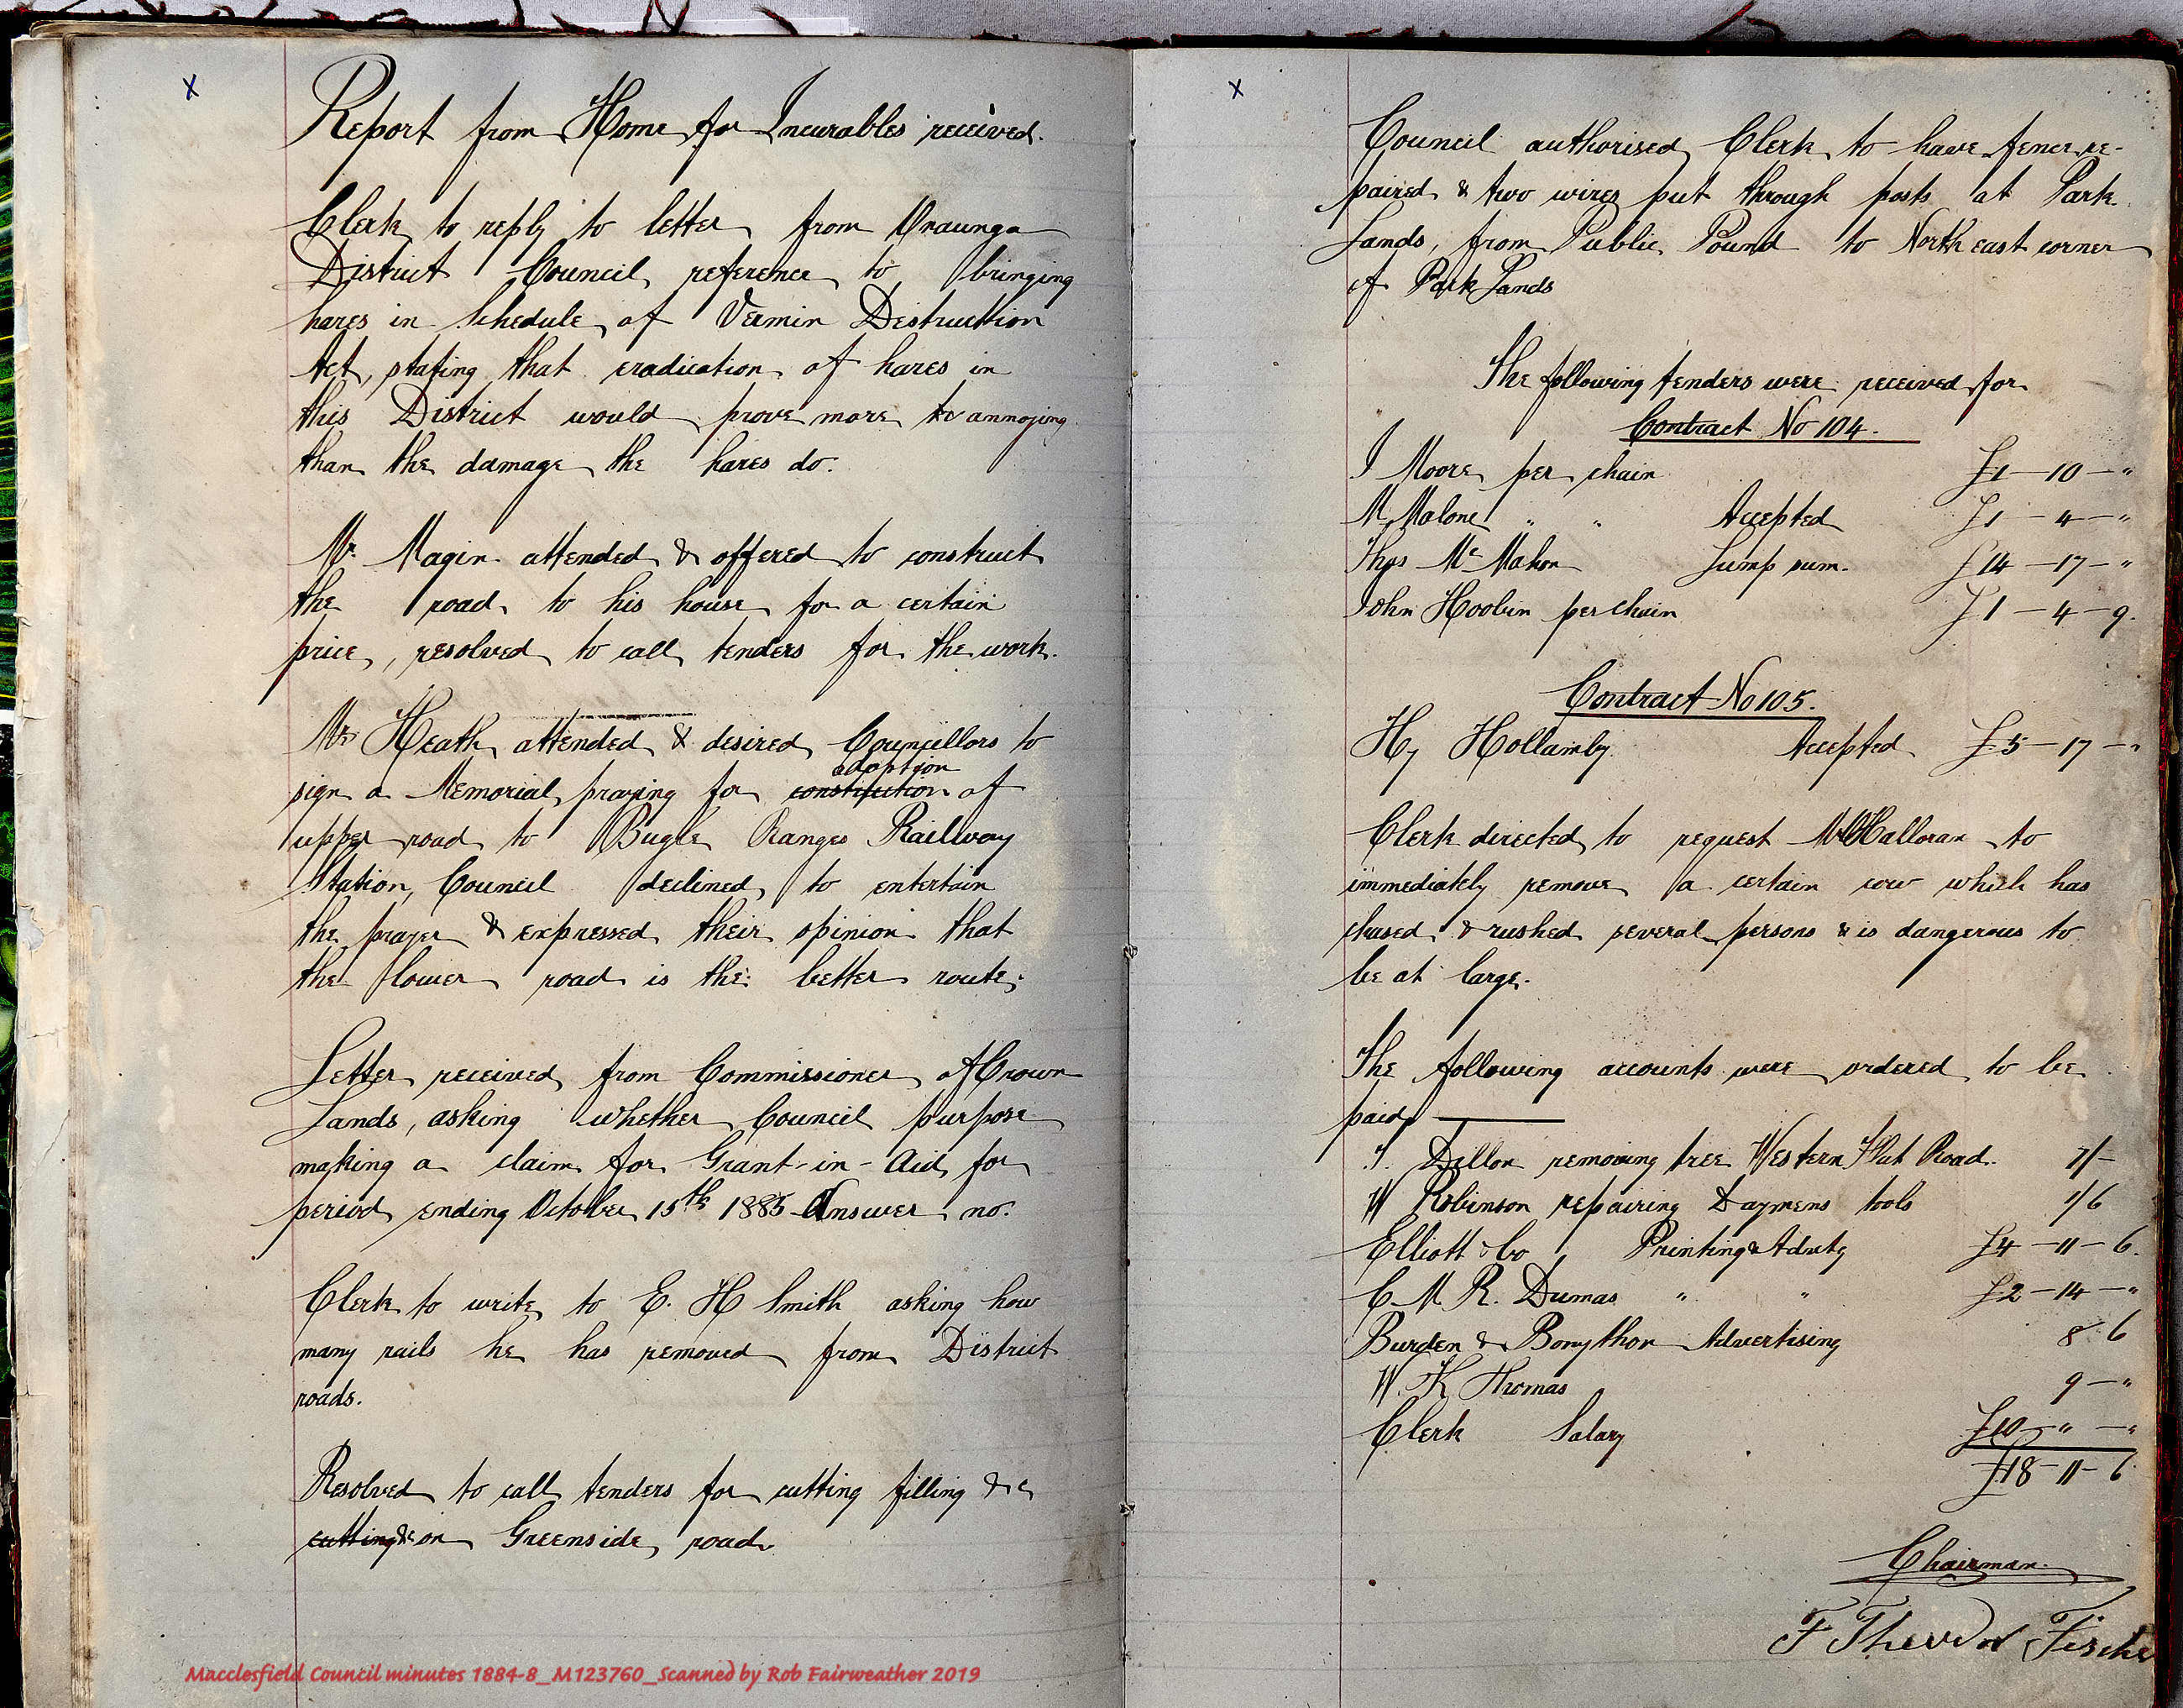 x
Report from Home for Incurables received.
Clerk to reply to letter from Onaunga
District Council reference to bringing
hares in Schedule of Vermin Destruction
Act, stating that eradication of hares in
this District would prove more annoying
than the damage the hares do.
Mr. Magin attended & offered to construct
the road to his house for a certain
price, resolved to call tenders for the work.
Mr Heath attended & desired Councillors to
adoption
sign a Memorial praying for constitution of
upper road to Bugle Ranges Railway
Station, Council declined to entertain
the prayer & expressed their opinion that
the lower road is the better route.
Letter received from Commissioner of Crown
Lands, asking whether Council purpose
making a claim for Grant-in-Aid for
period ending October 15th 1885 Answer no.
Clerk to write to E. H Smith asking how
many rails he has removed from District
roads.
Resolved to call tenders for cutting filling &c
cutting &c on Greenside road
Macclesfield Council minutes 1884-8_M123760_Scanned by Rob Fairweather 2019
x
Council authorised Clerk to have fence re-
paired & two wires put through posts at Park
Lands, from Public Pound to North east corner
of Park Lands
The following tenders were received for
Contract No 104.
J Moore per chain £1-10-"
M Malone " " Accepted £1-4-"
Thos McMahon Lump sum. £14-17-"
John Hoobin per chain £1-4-9.
Contract No 105.
Hy Hollamby Accepted £5-17-"
Clerk directed to request Mr O'Halloran to
immediately remove a certain cow which has
chased & rushed several persons & is dangerous to
be at large.
The following accounts were ordered to be
paid
T. Dillon removing tree Western Flat Road. 7/-
W Robinson repairing Daymens tools 1/6
Elliott & Co Printing & Advtg £4-11-6.
C. M. R. Dumas " " £2-14-"
Burden & Bonython Advertising 8 6
W. K Thomas 9-"
Clerk Salary £10-"-"
£18-11-6
Chairman.
F Theodor Fische